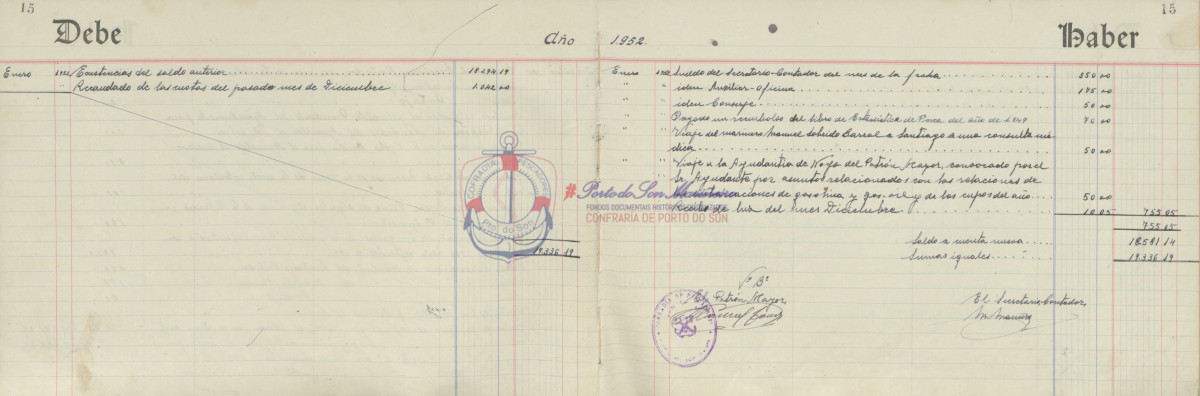 15
Debe
Año
Enero 1952 Existencias del saldo anterior 18.294 19
" Recaudado de las cuotas del pasado mes de Diciembre 1.042 00
19.336 19
15
1.952.
Haber
Enero 1952 Sueldo del Secretario-Contador del mes de la fecha 350 00
" " idem Auxiliar-Oficina 175 00
" " idem Conserje 50 00
" " Pagado un reembolso del libro de Estadística de Pesca del año de 1.949 70 00
" " Viaje del marinero Manuel Sobrido Barral a Santiago a una consulta mé-
dica 50 00
" " Viaje a la Ayudantía de Noya del Patrón Mayor, convocado por el
Sr. Ayudante por asuntos relacionados con las relaciones de
de gasolina y gas-oil y de los cupos del año 50 00
Recibo de luz del mes Diciembre 10 05 755 05
755 05
Saldo a cuenta nueva 18.581 14
Sumas iguales 19.336 19
Vº Bº
El Patrón Mayor,
El Secretario-Contador,
COFRADIA DE PESCADORES
Pto. do Son
#Porto do Son Marinheiro
FONDOS DOCUMENTAIS HISTÓRICOS
CONFRARIA DE PORTO DO SON